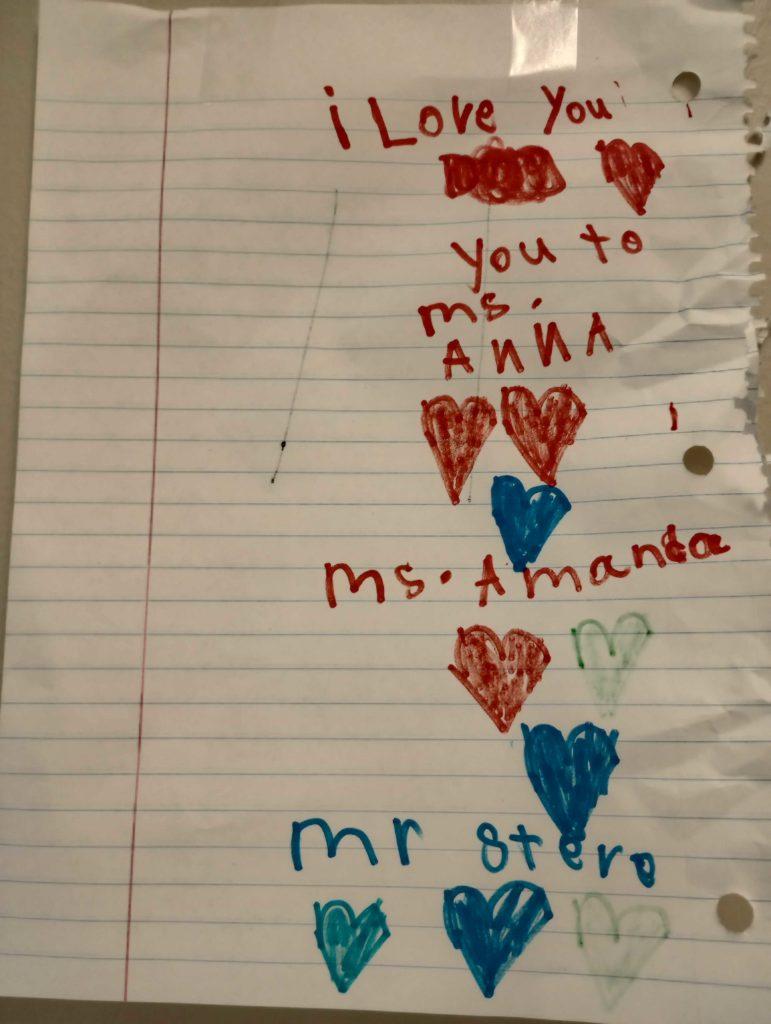 i Love You
you to
ms.
ANNA
ms. Amanda
mr stero